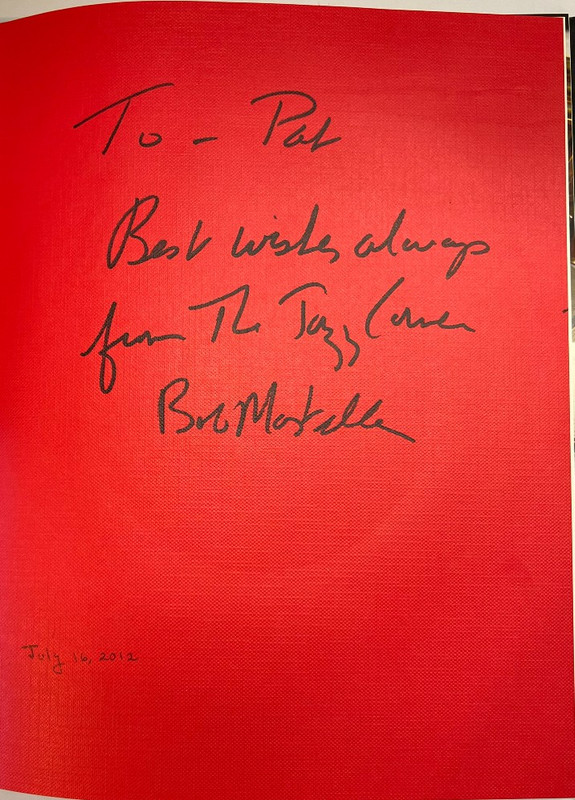 To - Pat
Best wishes always
from The Jazz Corner
Bob Masteller
July 16, 2012